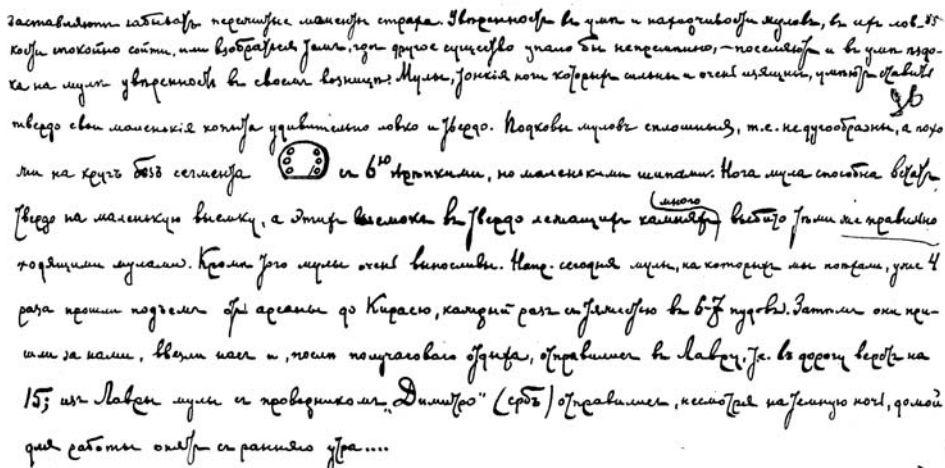 заставляютъ забывать пересилные моменты страха. Увѣренность въ умѣ и находчивости муловъ, въ ихъ лов-
кости спокойно сойти, или взобраться тамъ, гдѣ другое существо упало бы непремѣнно, – поселяютъ и въ умѣ ѣздо-
ка на мулѣ увѣренность въ своемъ возницѣ. Мулы, тонкія ноги которыхъ сильны и очень изящны, умѣютъ ставить
твердо свои маленькія копыта удивительно ловко и твердо. Подковы муловъ сплошныя, т.е. не дугообразны, а похо
жи на кругъ безъ сегмента съ 6ю крѣпкими, но маленькими шипами. Нога мула способна встать
твердо на маленькую выемку, а этихъ выемокъ въ твердо лежащихъ камняхъ много выбито тѣми же правильно
ходящими мулами. Кромѣ того мулы очень выносливы. Напр. сегодня мулы, на которыхъ мы поѣхали, уже 4
раза прошли подъемъ отъ арсаны до Кирасею, каждый разъ съ тяжестью въ 6-7 пудовъ. Затѣмъ они при-
шли за нами, ввезли насъ и, послѣ получасового отдыха, отправились въ Лавру, т.е. въ дорогу верстъ на
15; изъ Лавры мулы съ проводникомъ „Димитро" (сербъ) отправились, несмотря на темную ночь, домой
для работы опять съ ранняго утра....